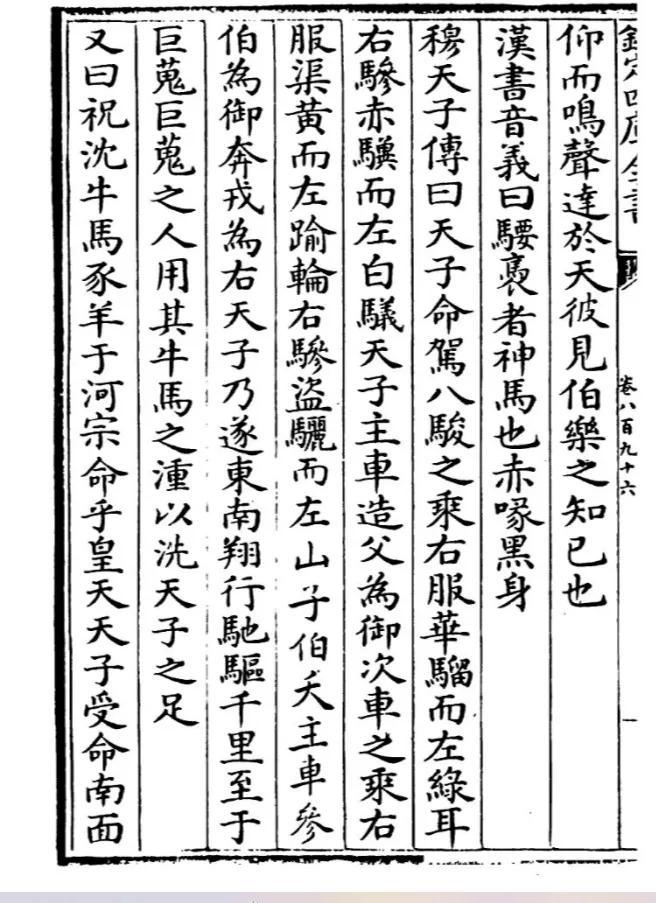 欽定四庫全書
卷八百九十六
仰而鳴聲達於天彼見伯樂之知已也
漢書音義曰騕褭者神馬也赤喙黑身
穆天子傳曰天子命駕八駿之乘右服華騮而左綠耳
右驂赤驥而左白䮗天子主車造父為御次車之乘右
服渠黃而左踰輪右驂盜驪而左山子伯夭主車參
伯為御奔戎為右天子乃遂東南翔行馳驅千里至于
巨蒐巨蒐之人用其牛馬之湩以洗天子之足
又曰祝沈牛馬豕羊于河宗命乎皇天天子受命南面